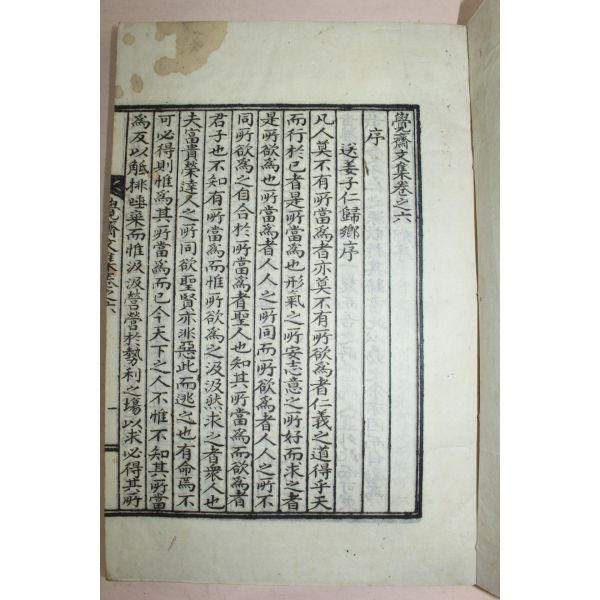 覺齋文集卷之六
序
送姜子仁歸鄉序
凡人莫不有所當爲者亦莫不有所欲爲者仁義之道得乎天
而行於已者是所當爲也形氣之所安志意之所好而求之者
是所欲爲也所當爲者人人之所同而所欲爲者人人之所不
同所欲爲之自合於所當爲者聖人也知其所當爲而欲爲者
君子也不知有所當爲而惟所欲爲之汲汲然求之者衆人也
夫富貴榮達人之所同欲聖賢亦非惡此而逃之也有命焉不
可必得則惟爲其所當爲而已今天下之人不惟不知其所當
爲反以觝排唾棄而惟汲汲營營於勢利之場以求必得其所
覺齋文集卷之六
一